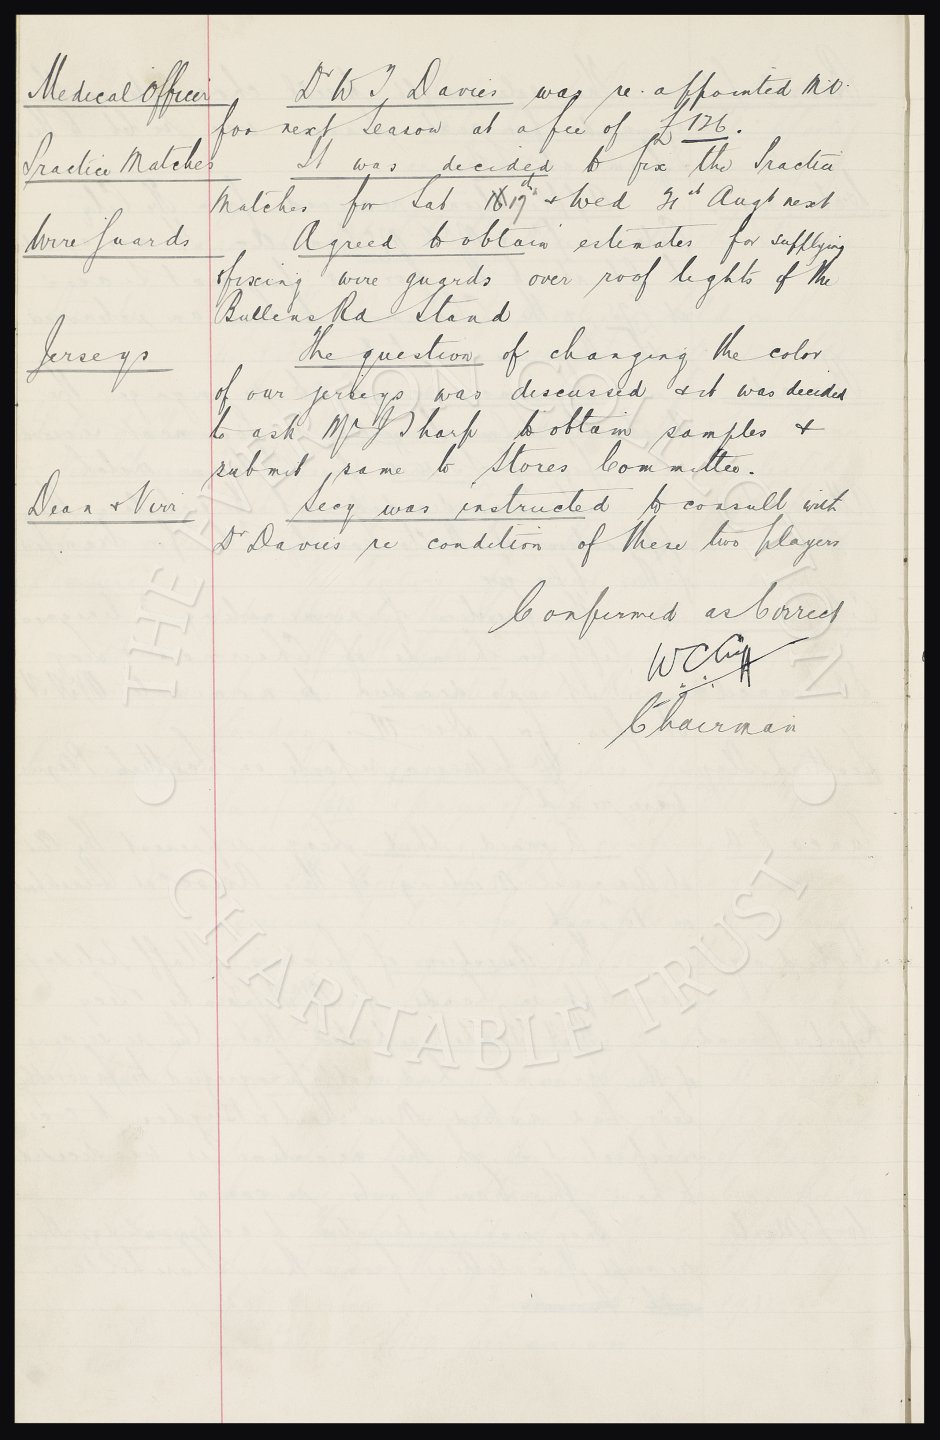 Medical Officer Dr W J Davies was re-appointed M.O.
for next season at a fee of £126.
Practice Matches It was decided to fix the Practice
Matches for Sat 17th & Wed 21st Augt next
Wire Guards Agreed to obtain estimates for supplying
& fixing wire guards over roof lights of the
Bullens Rd Stand
Jerseys The question of changing the color
of our jerseys was discussed & it was decided
to ask Mr J Sharp to obtain samples &
submit same to Stores Committee.
Dean & Virr Secy was instructed to consult with
Dr Davies re condition of these two players
Confirmed as Correct
W C Cuff
Chairman
THE EVERTON COLLECTION
CHARITABLE TRUST